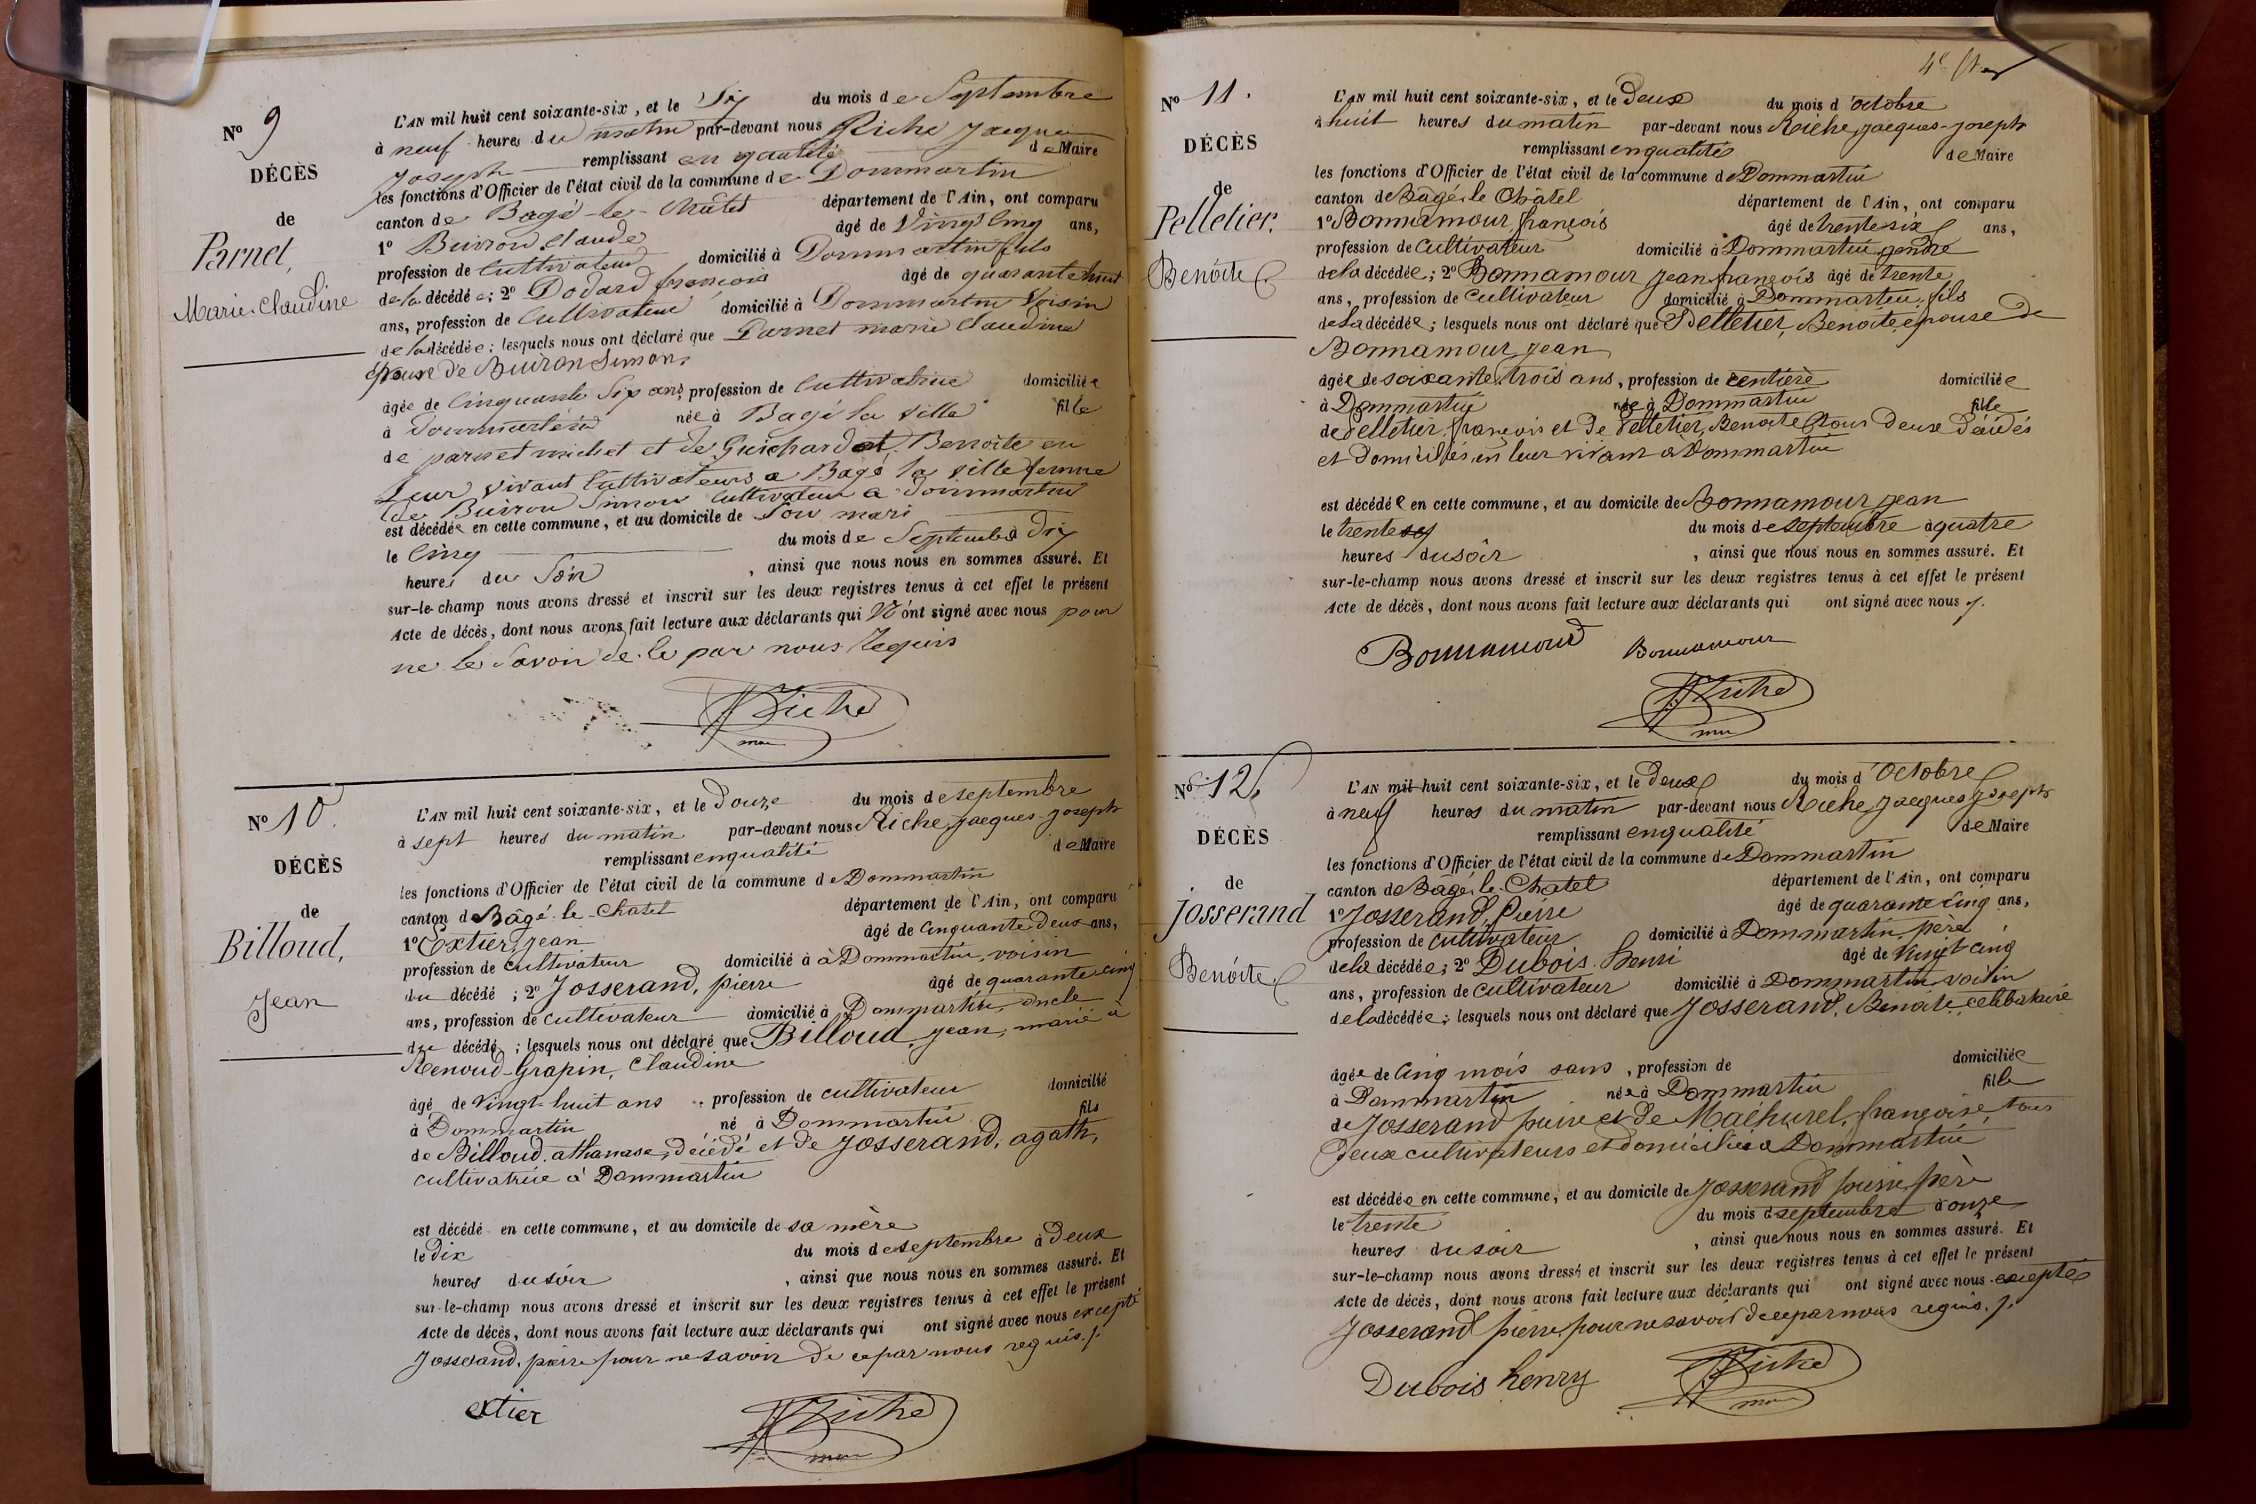 N° 9
DÉCÈS
de
Parnet,
Marie-Claudine
L'AN mil huit cent soixante-six, et le Six du mois de Septembre
à neuf heures du matin par-devant nous Riche Jacques
Joseph remplissant en qualité de Maire
les fonctions d'Officier de l'état civil de la commune de Dommartin
canton de Bagé-le-Châtel département de l'Ain, ont comparu
1° Buiron Claude âgé de Vingt Cinq ans,
profession de Cultivateur domicilié à Dommartin fils
de la décédée; 2° Dodard françois âgé de quarante huit
ans, profession de Cultivateur domicilié à Dommartin Voisin
de la décédée; lesquels nous ont déclaré que Parnet marie Claudine
épouse de Buiron Simon,
âgée de Cinquante Six ans, profession de Cultivatrice domiciliée
à Dommartin née à Bagé la Ville fille
de parnet michel et de Guichardet Benoite en
Leur vivant Cultivateurs a Bagé la Ville femme
de Buiron Simon Cultivateur a Dommartin
est décédée en cette commune, et au domicile de Son mari
le Cinq du mois de Septembre à Dix
heures du Soir, ainsi que nous nous en sommes assuré. Et
sur-le-champ nous avons dressé et inscrit sur les deux registres tenus à cet effet le présent
Acte de décès, dont nous avons fait lecture aux déclarants qui N'ont signé avec nous pour
ne le Savoir de ce par nous Requis
Riche
N° 10.
DÉCÈS
de
Billoud,
Jean
L'AN mil huit cent soixante-six, et le Douze du mois de septembre
à sept heures du matin par-devant nous Riche, Jacques-Joseph
remplissant en qualité de Maire
les fonctions d'Officier de l'état civil de la commune de Dommartin
canton de Bâgé-le-Chatel département de l'Ain, ont comparu
1° Extier, Jean âgé de Cinquante Deux ans,
profession de cultivateur domicilié à à Dommartin, voisin
du décédé; 2° Josserand, pierre âgé de quarante cinq
ans, profession de cultivateur domicilié à Dommartin, oncle
du décédé; lesquels nous ont déclaré que Billoud, Jean, marié à
Renoud-Grapin, Claudine
âgé de Vingt-huit ans, profession de cultivateur domicilié
à Dommartin né à Dommartin fils
de Billoud, athanase, Décédé et de Josserand, agath,
cultivatrice à Dommartin
est décédé en cette commune, et au domicile de sa mère
le Dix du mois de septembre à Deux
heures du soir, ainsi que nous nous en sommes assuré. Et
sur-le-champ nous avons dressé et inscrit sur les deux registres tenus à cet effet le présent
Acte de décès, dont nous avons fait lecture aux déclarants qui ont signé avec nous excepté
Josserand, pierre pour ne savoir de ce par nous requis./.
extier Riche
N° 11.
DÉCÈS
de
Pelletier,
Benoite
L'AN mil huit cent soixante-six, et le Deux du mois d'octobre
à huit heures du matin par-devant nous Riche, Jacques-Joseph
remplissant en qualité de Maire
les fonctions d'Officier de l'état civil de la commune de Dommartin
canton de Bâgé-le-Châtel département de l'Ain, ont comparu
1° Bonnamour, françois âgé de trente six ans,
profession de cultivateur domicilié à Dommartin, gendre
de la décédée; 2° Bonnamour Jean françois âgé de trente
ans, profession de cultivateur domicilié à Dommartin, fils
de la décédée; lesquels nous ont déclaré que Pelletier, Benoite, épouse de
Bonnamour, Jean
âgée de soixante trois ans, profession de rentière domiciliée
à Dommartin née à Dommartin fille
de Pelletier, françois et de Pelletier, Benoite, tous deux décédés
et domiciliés en leur vivant à Dommartin
est décédée en cette commune, et au domicile de Bonnamour, Jean
le trente du mois de septembre à quatre
heures du soir, ainsi que nous nous en sommes assuré. Et
sur-le-champ nous avons dressé et inscrit sur les deux registres tenus à cet effet le présent
Acte de décès, dont nous avons fait lecture aux déclarants qui ont signé avec nous ./.
Bonnamour Bonnamour
Riche
N° 12.
DÉCÈS
de
Josserand
Benoite
L'AN mil huit cent soixante-six, et le Deux du mois d'octobre
à neuf heures du matin par-devant nous Riche, Jacques Joseph
remplissant en qualité de Maire
les fonctions d'Officier de l'état civil de la commune de Dommartin
canton de Bâgé-le-Chatel département de l'Ain, ont comparu
1° Josserand, Pierre âgé de quarante cinq ans,
profession de cultivateur domicilié à Dommartin, père
de la décédée; 2° Dubois, henri âgé de vingt cinq
ans, profession de cultivateur domicilié à Dommartin voisin
de la décédée; lesquels nous ont déclaré que Josserand, Benoite, célibataire
âgée de cinq mois sans, profession de domiciliée
à Dommartin née à Dommartin fille
de Josserand pierre et de Maéhurel, françoise, tous
Deux cultivateurs et domiciliés à Dommartin
est décédée en cette commune, et au domicile de Josserand pierre, père
le trente du mois de septembre à onze
heures du soir, ainsi que nous nous en sommes assuré. Et
sur-le-champ nous avons dressé et inscrit sur les deux registres tenus à cet effet le présent
Acte de décès, dont nous avons fait lecture aux déclarants qui ont signé avec nous excepté
Josserand pierre, pour ne savoir de ce par nous requis./.
Dubois henry Riche